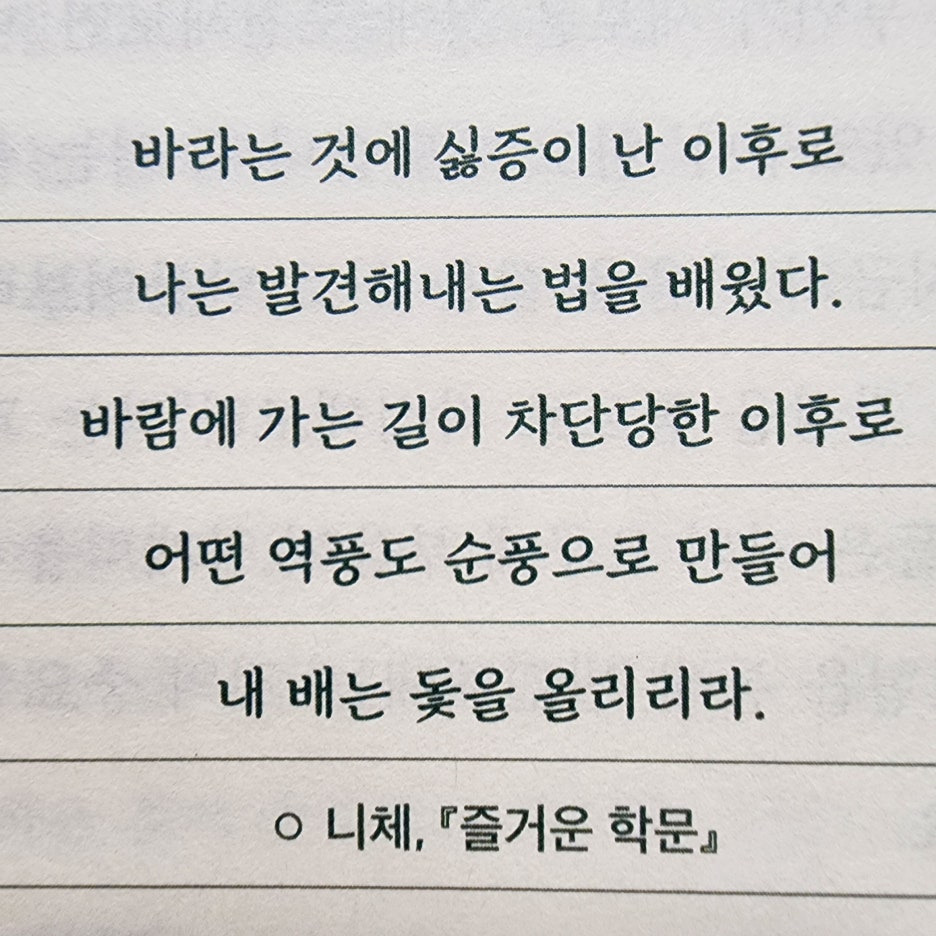 바라는 것에 싫증이 난 이후로
나는 발견해내는 법을 배웠다.
바람에 가는 길이 차단당한 이후로
어떤 역풍도 순풍으로 만들어
내 배는 돛을 올리리라.
○ 니체, 『즐거운 학문』